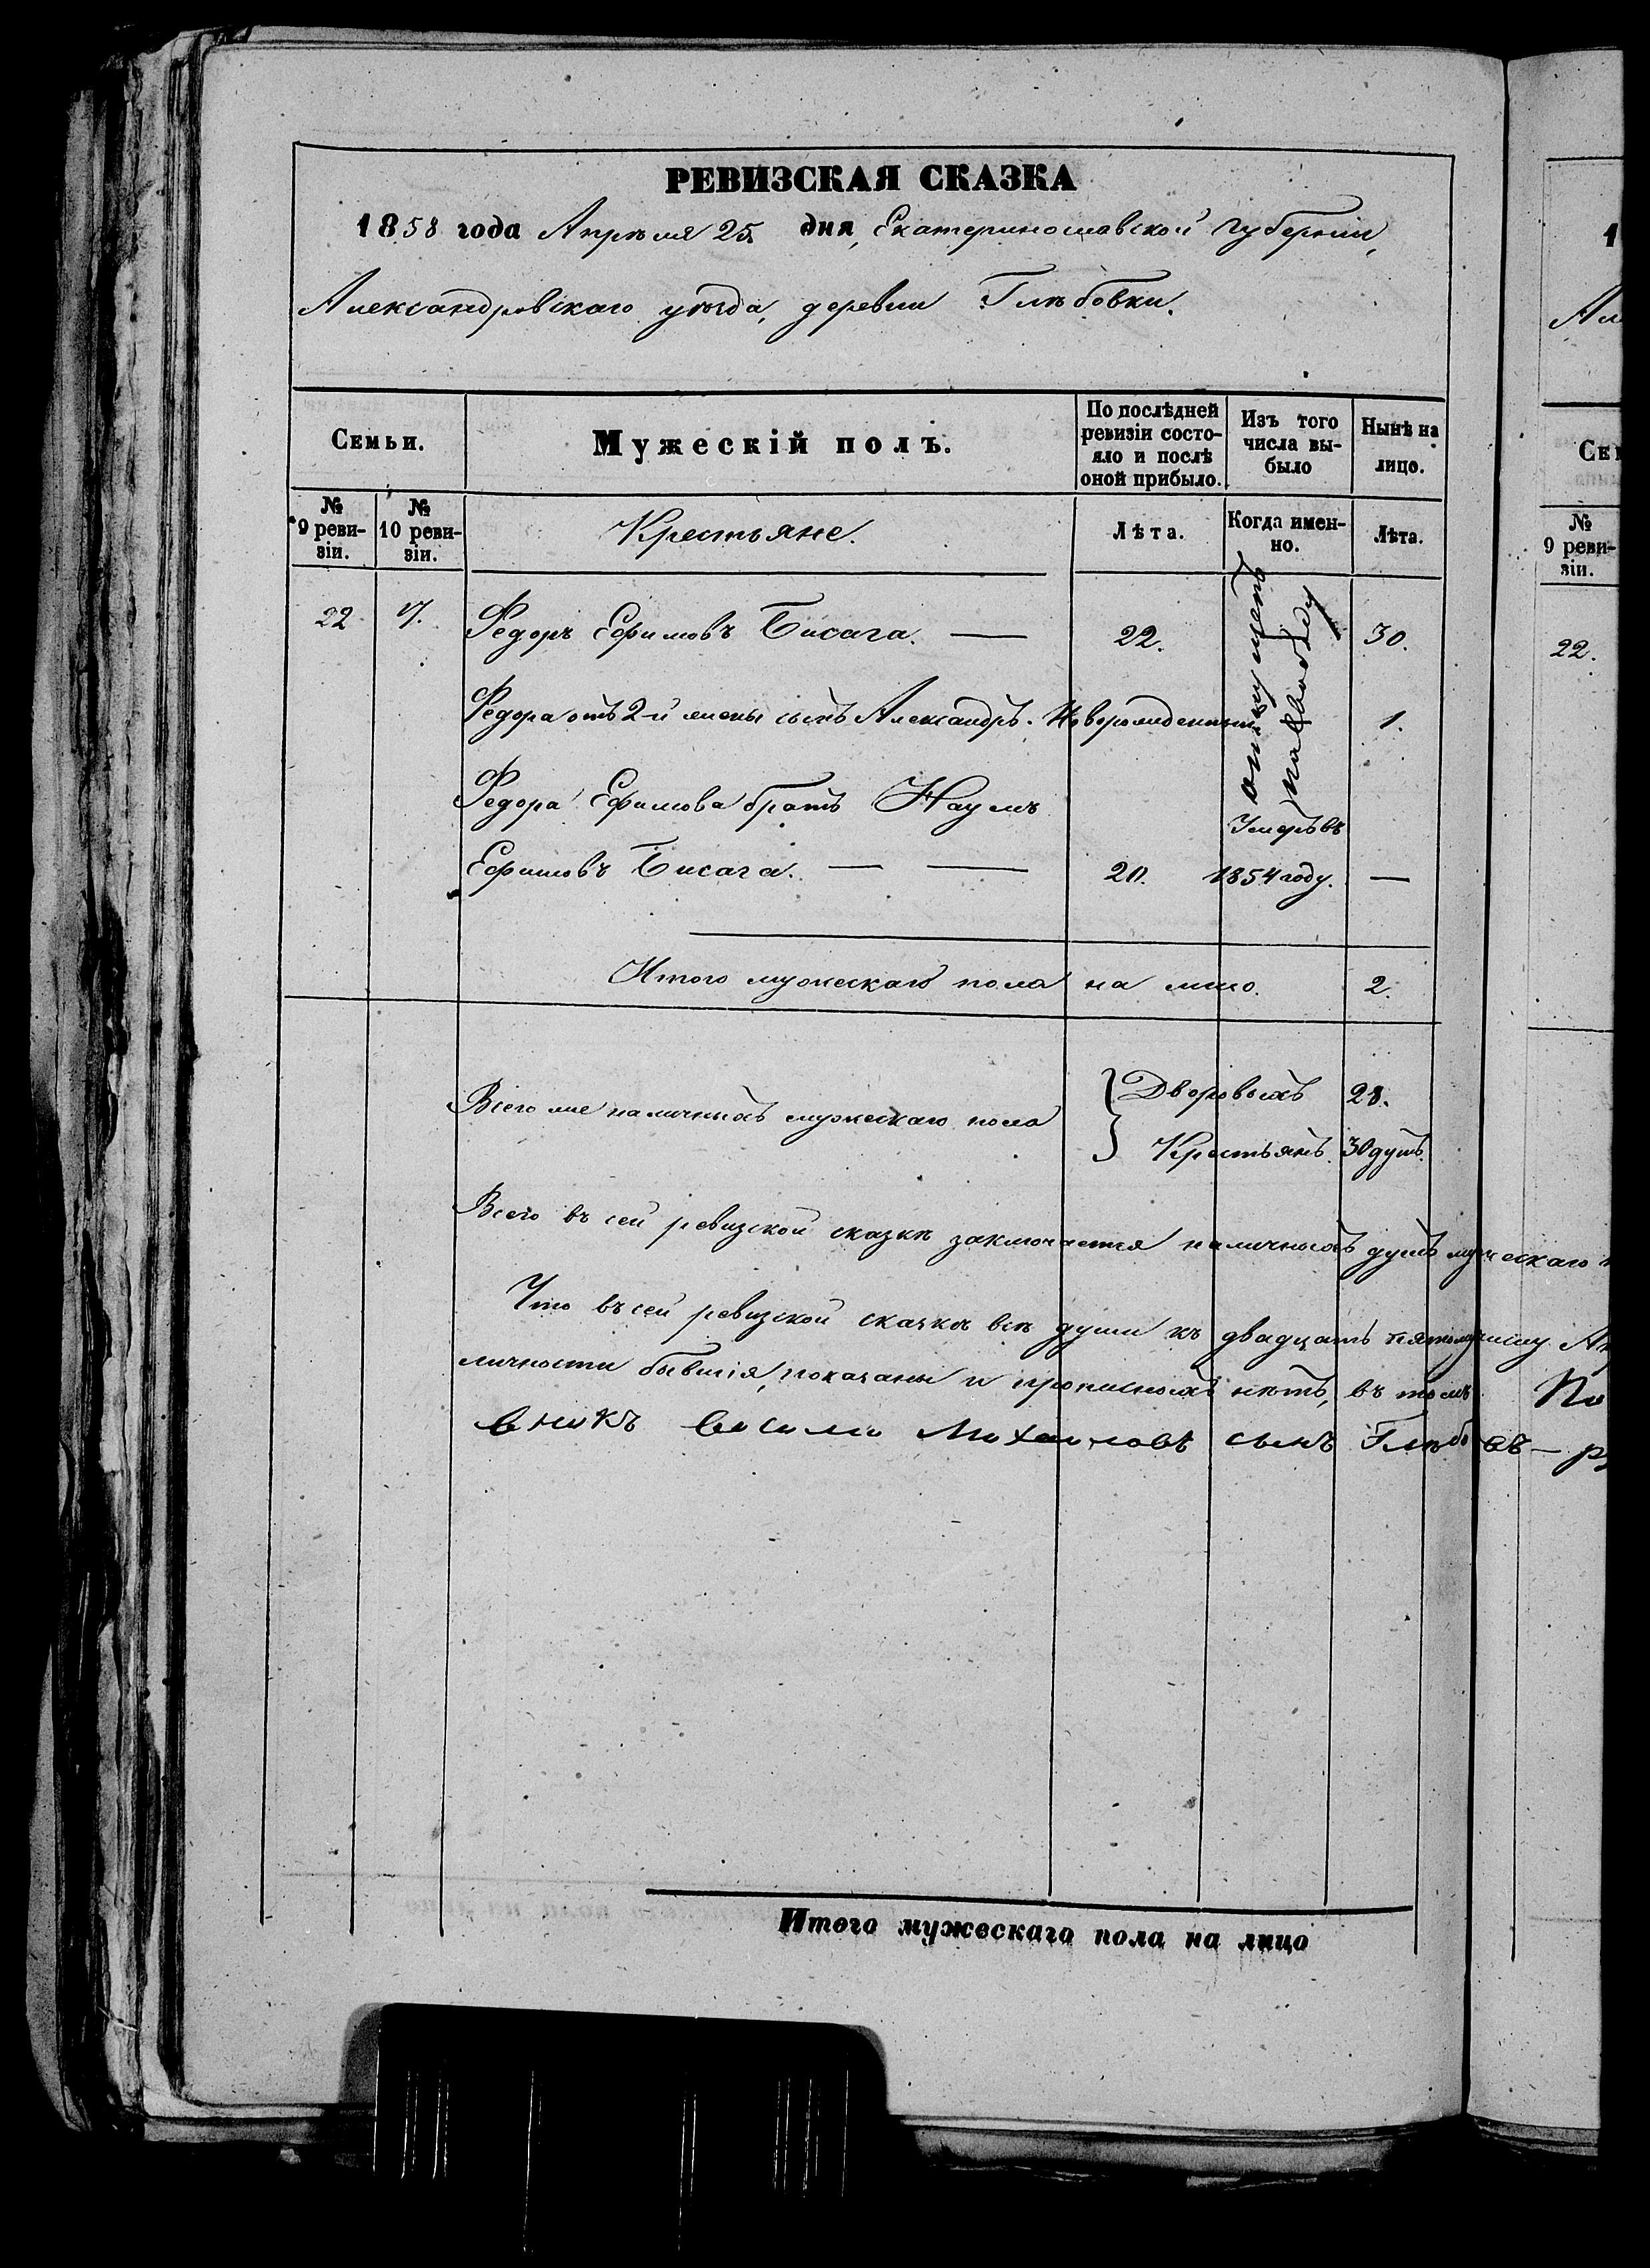 РЕВИЗСКАЯ СКАЗКА
1858 года Апрѣля 25. дня, Екатеринославской Губерніи,
Александровскаго уѣзда, деревни Глѣбовки.
Семьи.
Мужескій полъ.
По послѣдней ревизіи состо-
яло и послѣ
оной прибыло.
Изъ того
числа вы-
было
Нынѣ на
лицо.
№
9 реви-
зіи.
№
10 реви-
зіи.
Крестьяне.
Лѣта.
Когда имен-
но.
Лѣта.
22 17. Федоръ Ефимовъ Бисага. — 22. 30.
отпущенъ
на свободу
Федора отъ 2-й жены сынъ Александръ. Новорожденный 1.
Федора Ефимова братъ Наумъ
Умеръ въ
Ефимовъ Бисага. — — 20. 1854 году. —
Итого мужескаго пола на лицо. 2.
Всего же наличныхъ мужескаго пола
Дворовыхъ 28.
Крестьянъ. 30 душъ.
Всего въ сей ревизской сказкѣ заключается наличныхъ душъ мужескаго
Что въ сей ревизской сказкѣ всѣ души къ двадцать пятому числу Ап
личности бывшія, показаны и прописныхъ нѣтъ, въ томъ По
Михаиловъ сынъ Глѣбовъ – р
Итого мужескаго пола на лицо
1
Але
Сем
№
9 реви-
зіи.
22.